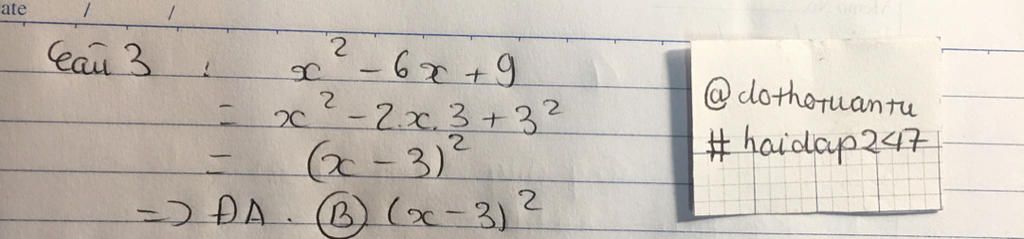 ate / /
Câu 3 : x² - 6x + 9
= x² - 2.x.3 + 3²
= (x - 3)²
=> ĐA . Ⓑ (x - 3)²
@dothotuantu
# haidap247